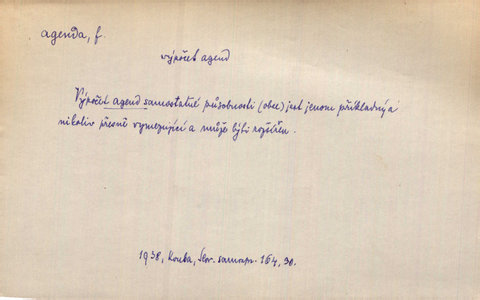 agenda, f.
výpočet agend
Výpočet agend samostatné působnosti (obce) jest jenom příkladný a
nikoliv přesně vymezující a může býti rozšířen.
1938, Kouba, Slov. samospr. 164, 30.